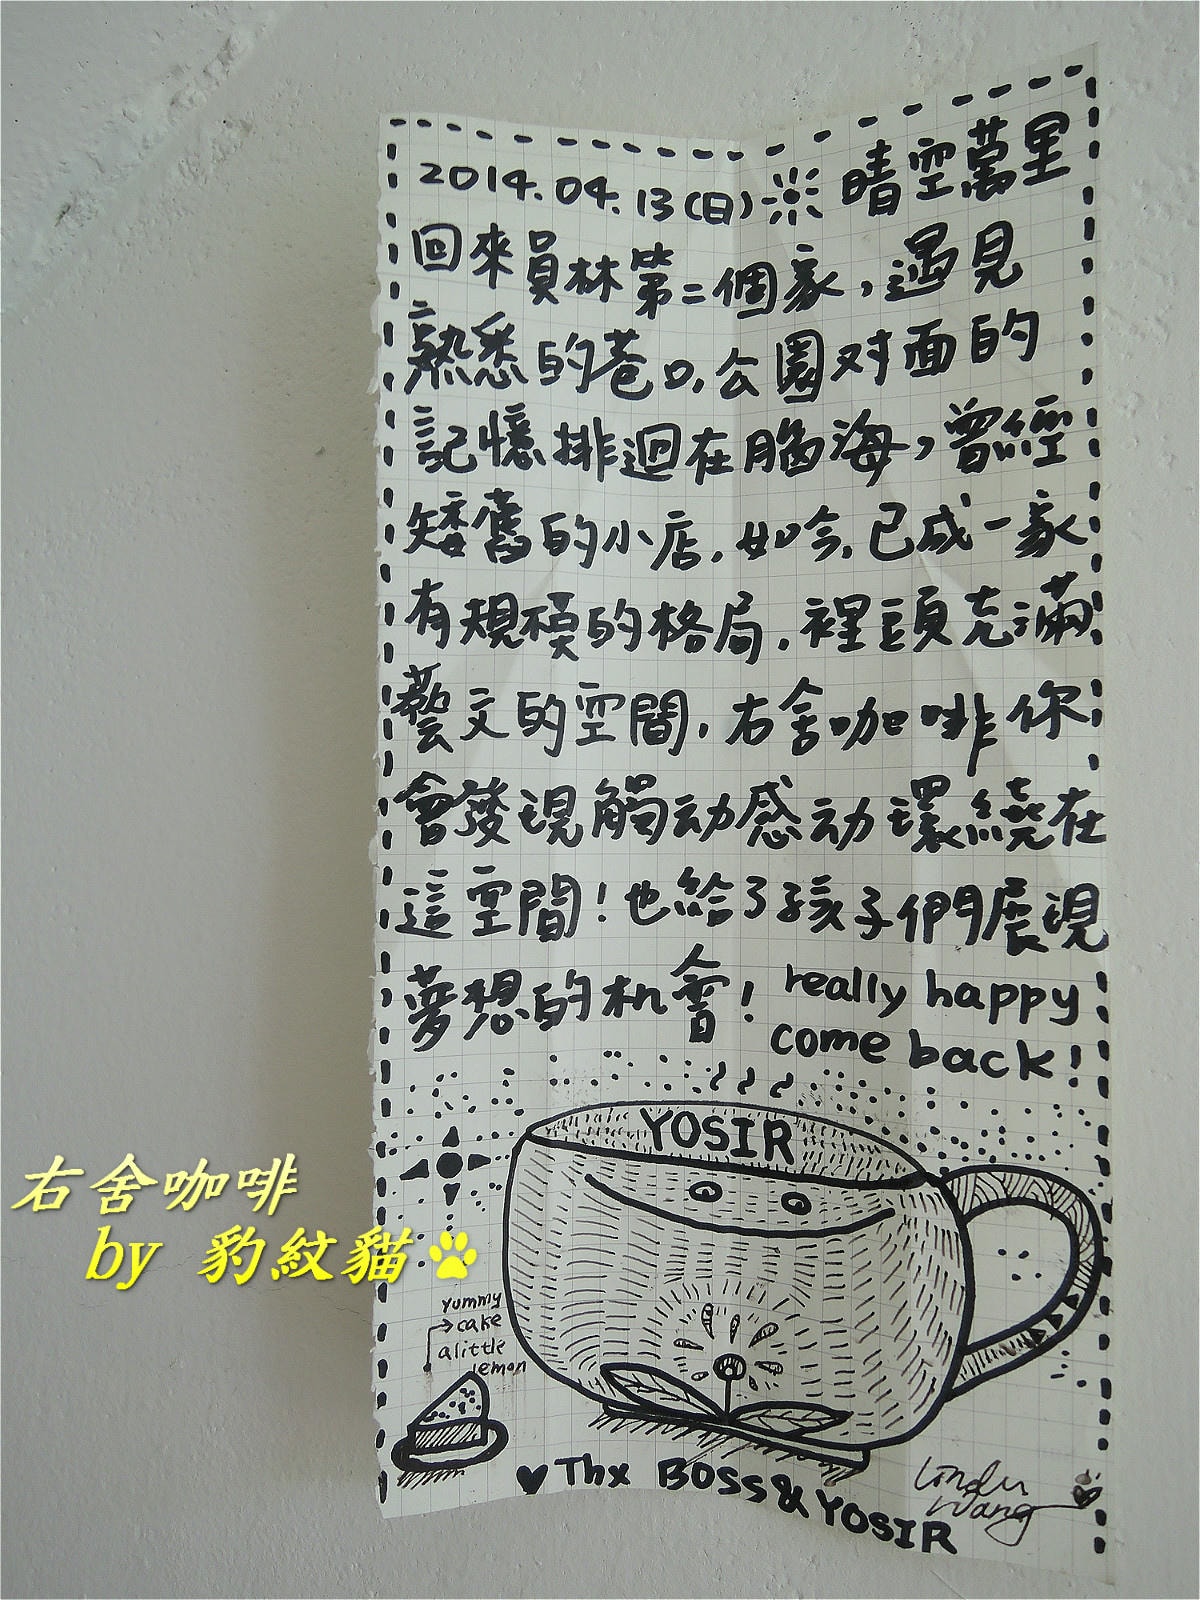 2014.04.13(日) 晴空萬里
回來員林第二個家,遇見
熟悉的巷口,公園对面的
記憶排迴在腦海,曾經
矮舊的小店,如今,已成一家
有規模的格局,裡頭充滿
藝文的空間,右舍咖啡你
會發現觸动感动環繞在
這空間!也給了孩子們展現
夢想的机會! really happy
come back!
YOSIR
右舍咖啡
by 豹紋貓
yummy
cake
a little
lemon
Thx BOSS & YOSIR
Wang